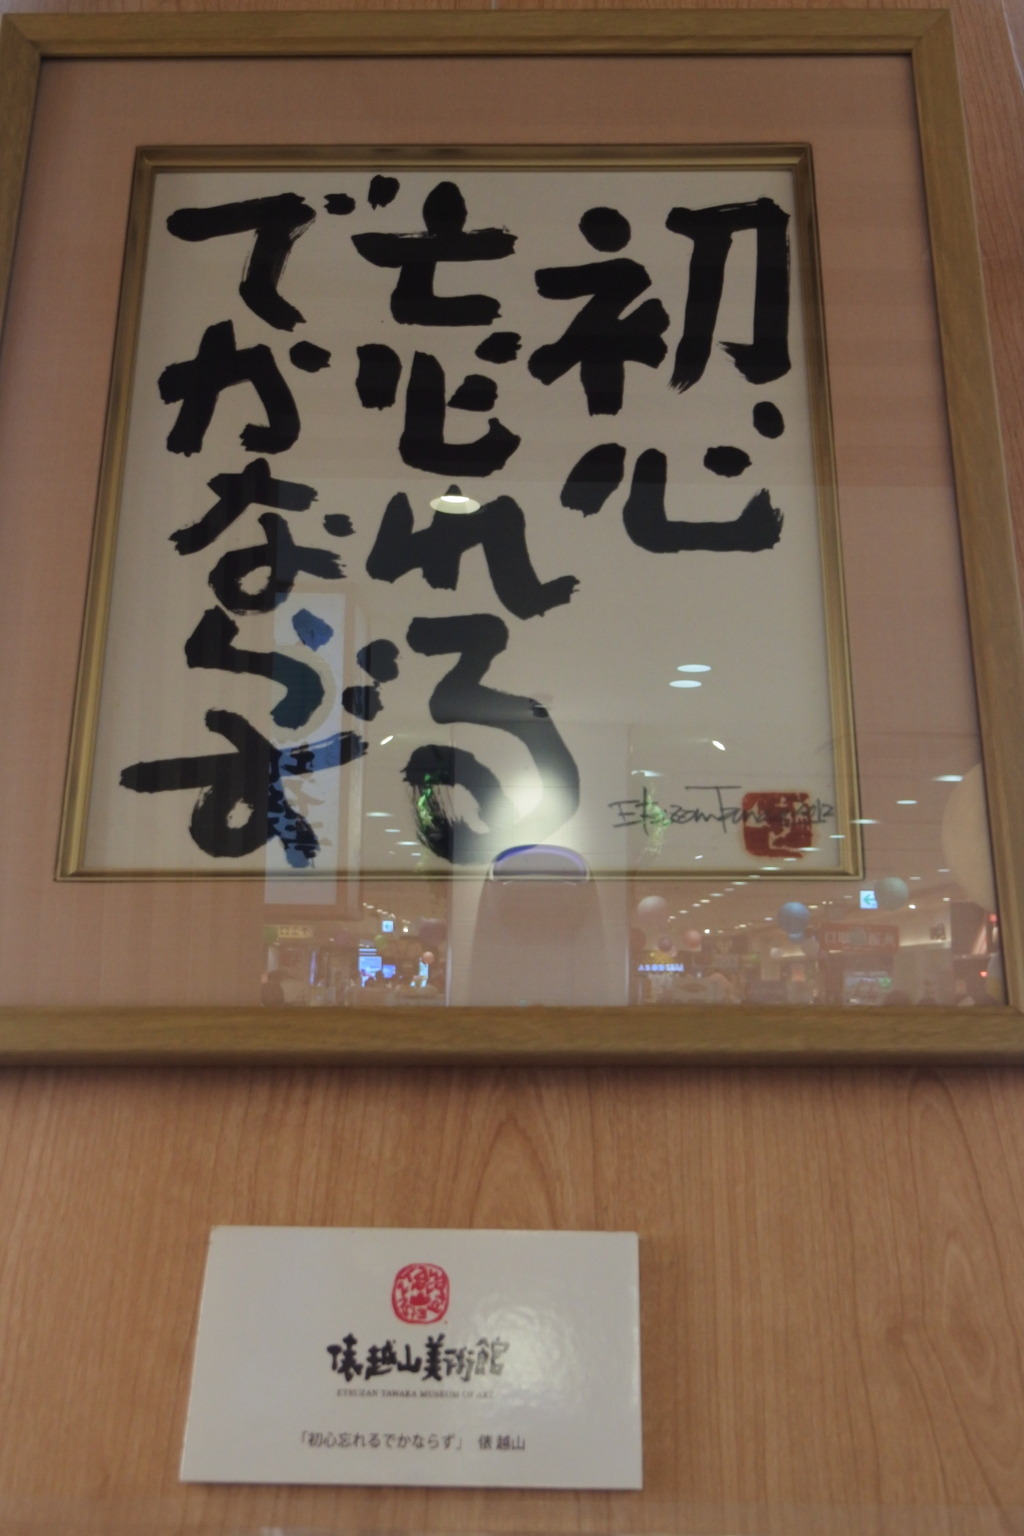 初心
忘れる
でかならず
Etsuzan Tawara
俵越山美術館
ETSUZAN TAWARA MUSEUM OF ART
「初心忘れるでかならず」 俵越山